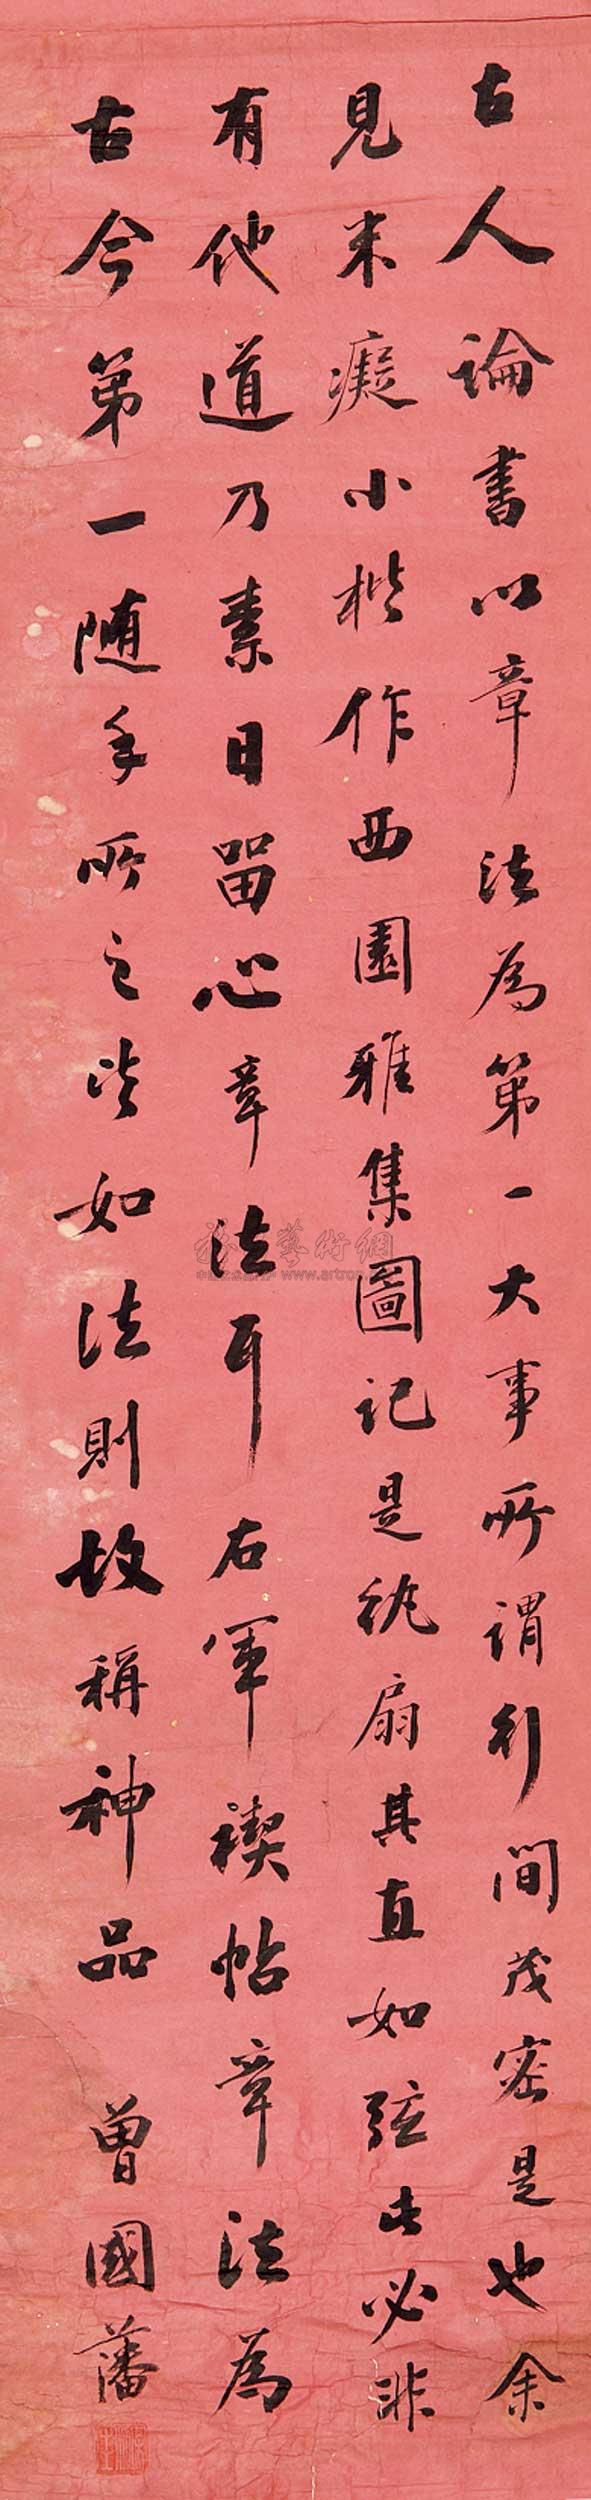 古人論書以章法為第一大事所謂行間茂密是也余
見米癡小楷作西園雅集圖記是紈扇其直如弦此必非
有他道乃素日留心章法耳右軍禊帖章法為
古今第一随手所之皆如法則故稱神品 曾國藩